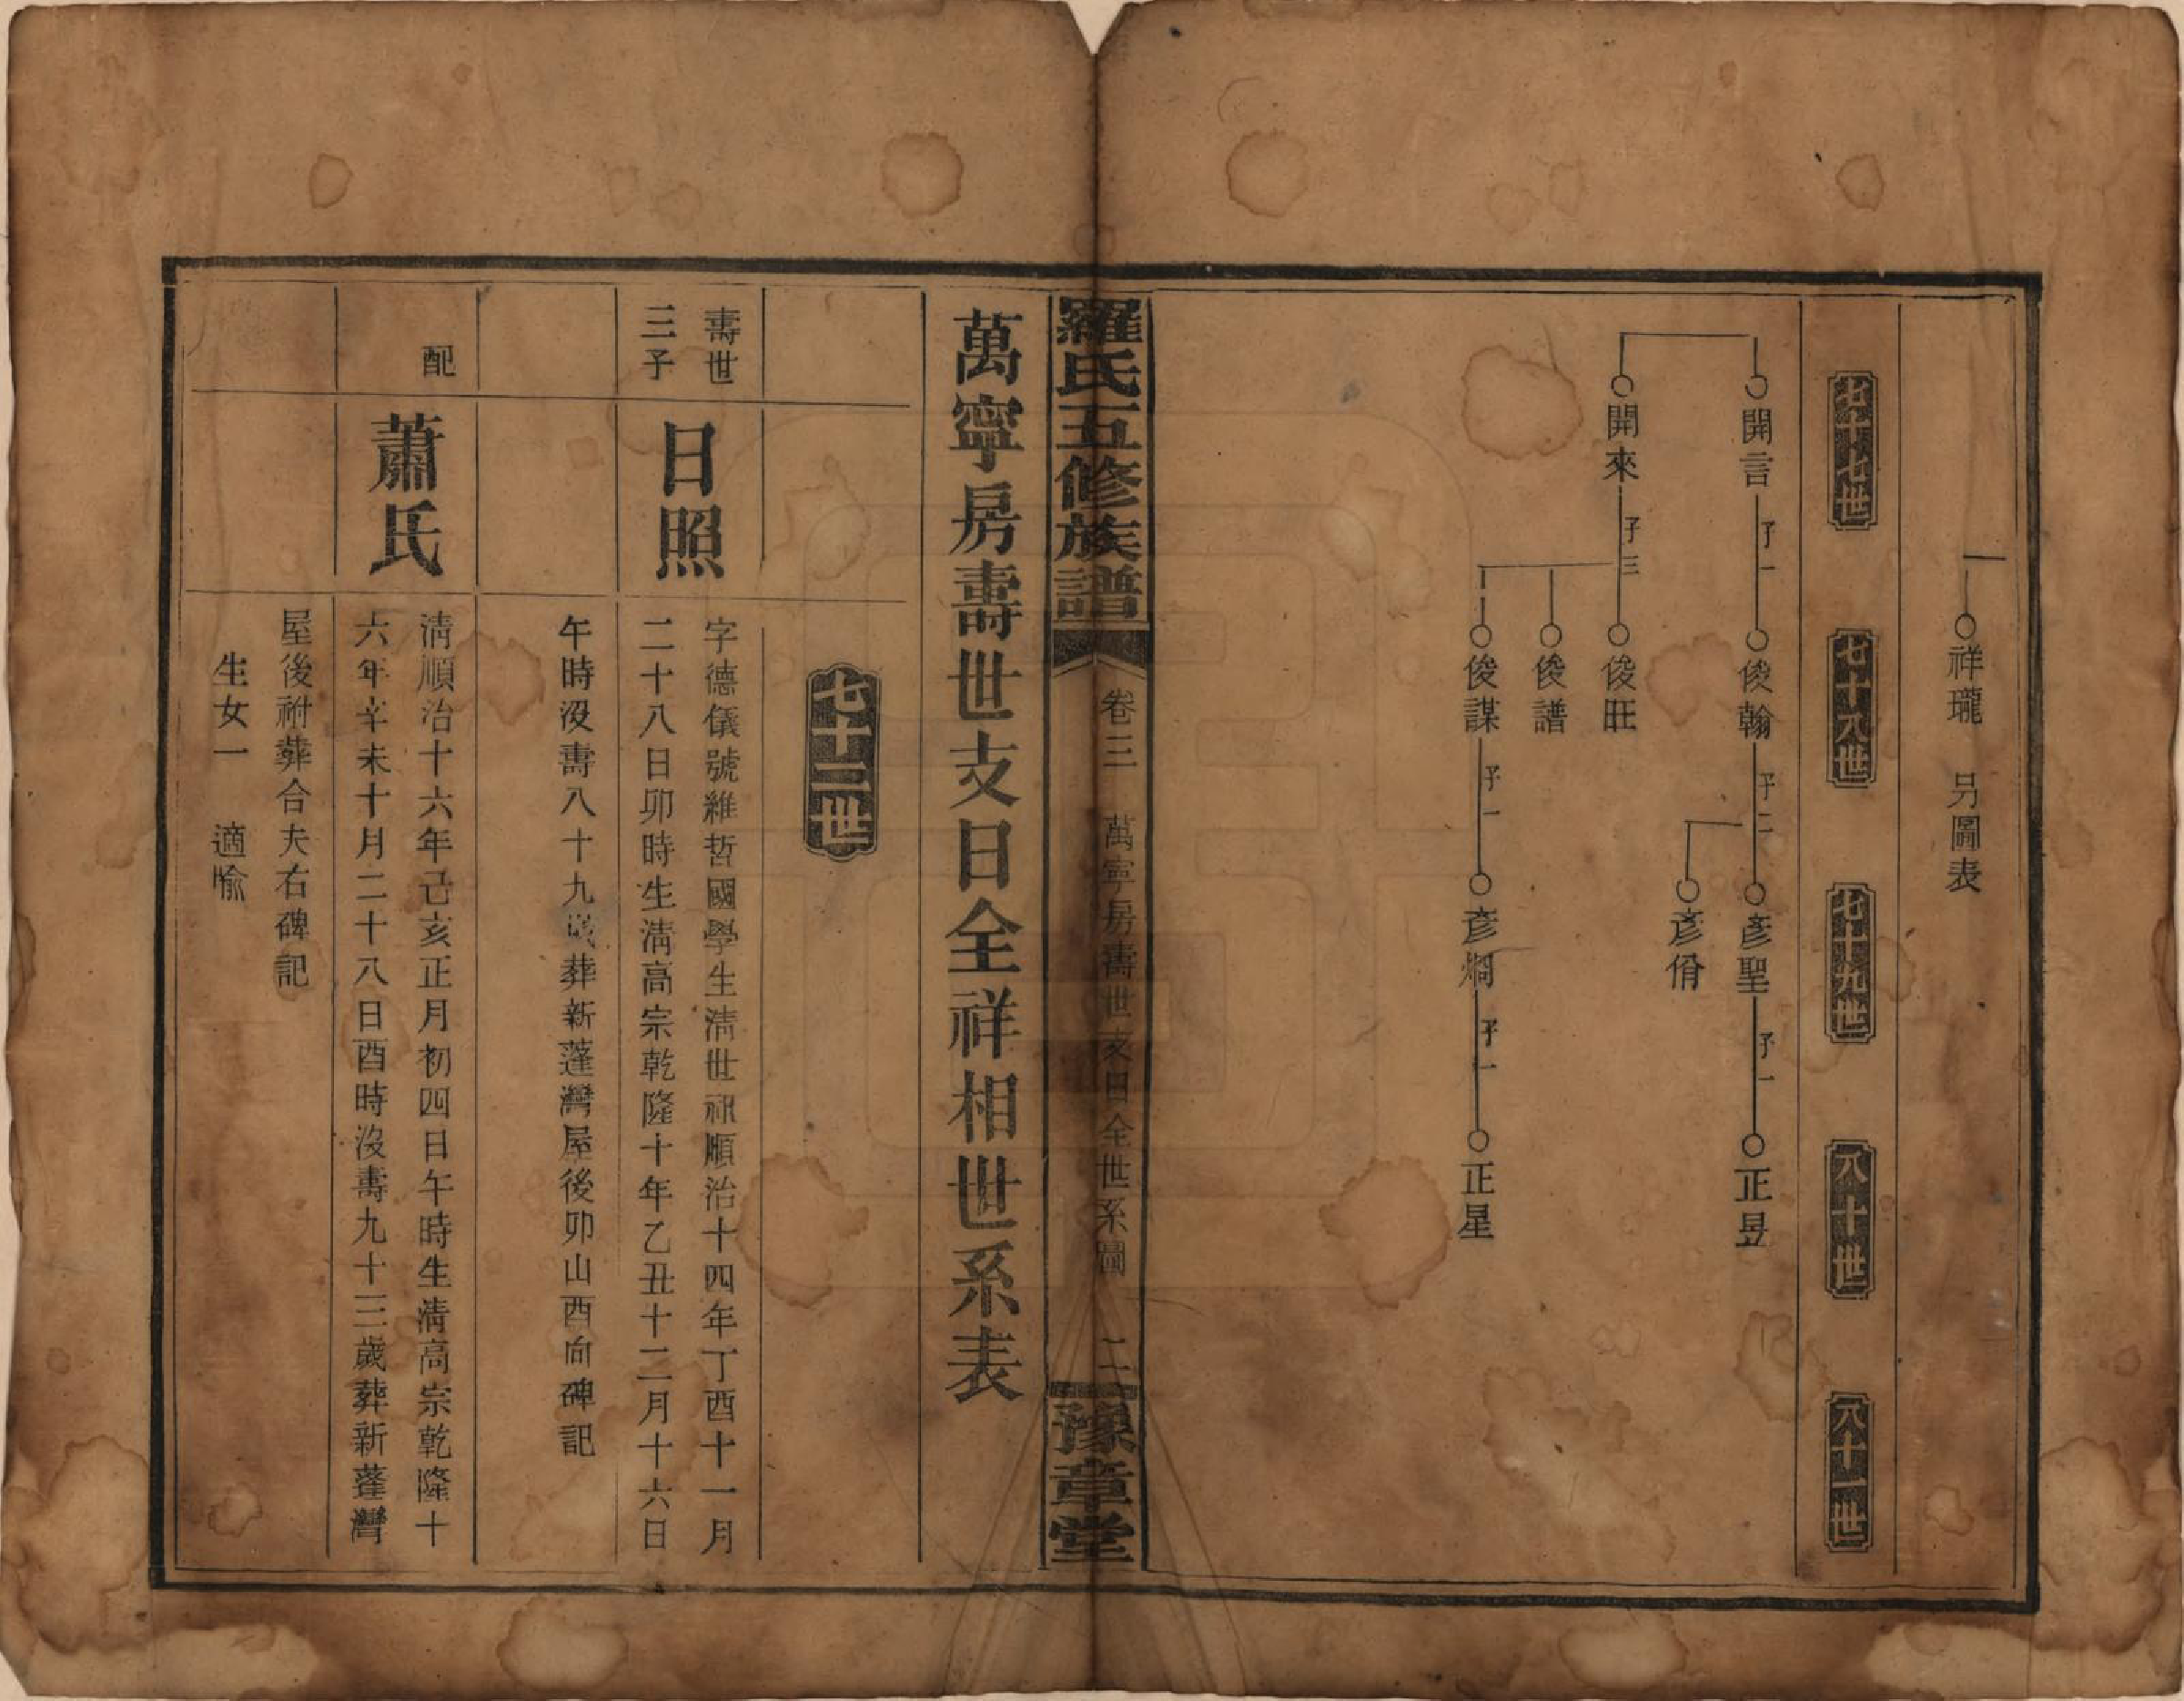 祥瓏　另圖表
七十七世
七十八世
七十九世
八十世
八十一世
開言
子一
俊翰
子二
彥聖
子一
正昱
彥佾
開來
子三
俊旺
俊譜
俊謀
子一
彥烱
子一
正星
羅氏五修族譜
卷三　萬寧房壽世支日全世系圖　二
豫章堂
萬寧房壽世支日全祥相世系表
七十二世
壽世
三子
日照
字德儀號維哲國學生清世祖順治十四年丁酉十一月
二十八日卯時生清高宗乾隆十年乙丑十二月十六日
午時沒壽八十九歲葬新蓬灣屋後卯山酉向碑記
配
蕭氏
清順治十六年己亥正月初四日午時生清高宗乾隆十
六年辛未十月二十八日酉時沒壽九十三歲葬新蓬灣
屋後祔葬合夫右碑記
生女一　適喻